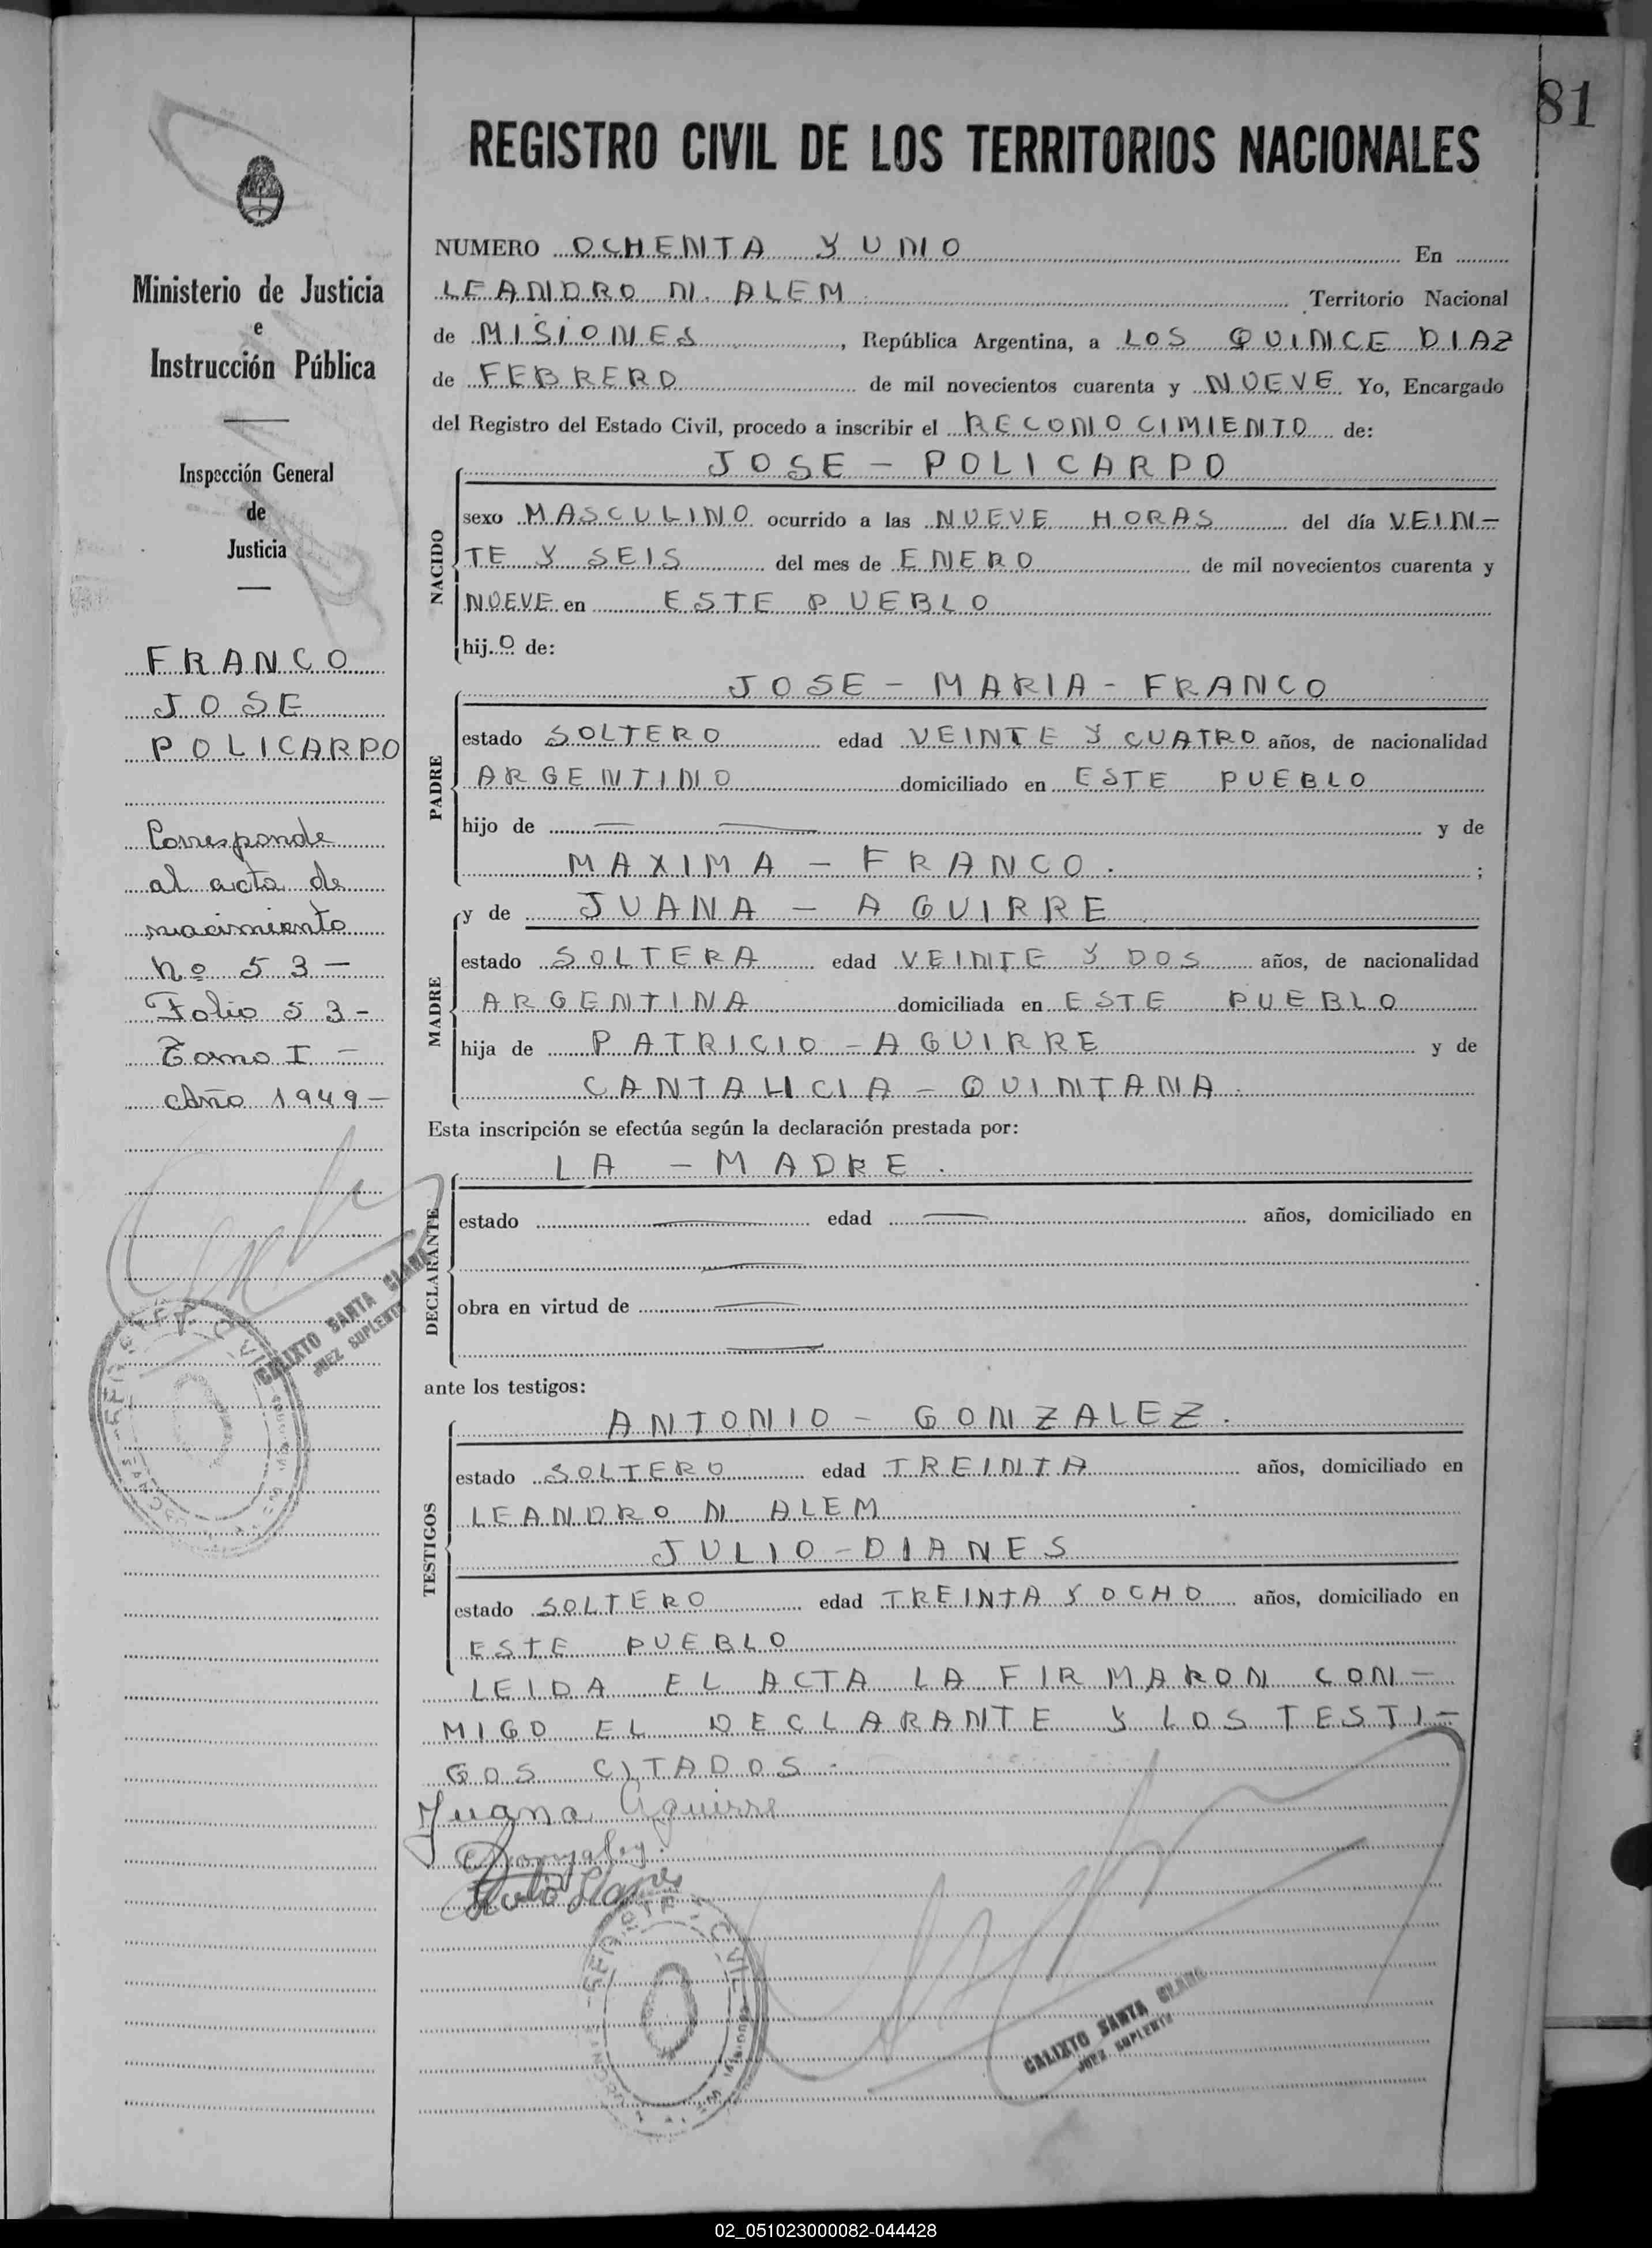 81
REGISTRO CIVIL DE LOS TERRITORIOS NACIONALES
Ministerio de Justicia
e
Instrucción Pública
Inspección General
de
Justicia
FRANCO
JOSE
POLICARPO
Corresponde
al acta de
nacimiento
Nº 53 —
Folio 53 -
Tomo I —
Año 1949 —
CALIXTO SANTA CLARA
JUEZ SUPLENTE
NUMERO OCHENTA Y UNO En
LEANDRO N. ALEM Territorio Nacional
de MISIONES, República Argentina, a LOS QUINCE DIAZ
de FEBRERO de mil novecientos cuarenta y NUEVE Yo, Encargado
del Registro del Estado Civil, procedo a inscribir el RECONOCIMIENTO de:
JOSE - POLICARPO
NACIDO
sexo MASCULINO ocurrido a las NUEVE HORAS del día VEIN-
TE Y SEIS del mes de ENERO de mil novecientos cuarenta y
NUEVE en ESTE PUEBLO
hijo de:
JOSE - MARIA - FRANCO
PADRE
estado SOLTERO edad VEINTE Y CUATRO años, de nacionalidad
ARGENTINO domiciliado en ESTE PUEBLO
hijo de y de
MAXIMA - FRANCO. ;
y de JUANA - AGUIRRE
MADRE
estado SOLTERA edad VEINTE Y DOS años, de nacionalidad
ARGENTINA domiciliada en ESTE PUEBLO
hija de PATRICIO - AGUIRRE y de
CANTALICIA - QUINTANA.
Esta inscripción se efectúa según la declaración prestada por:
LA - MADRE.
DECLARANTE
estado edad años, domiciliado en
obra en virtud de
ante los testigos:
ANTONIO - GONZALEZ.
TESTIGOS
estado SOLTERO edad TREINTA años, domiciliado en
LEANDRO N ALEM
JULIO - DIANES
estado SOLTERO edad TREINTA Y OCHO años, domiciliado en
ESTE PUEBLO
LEIDA EL ACTA LA FIRMARON CON-
MIGO EL DECLARANTE Y LOS TESTI-
GOS CITADOS.
Juana Aguirre
CALIXTO SANTA CLARA
JUEZ SUPLENTE
02_051023000082-044428